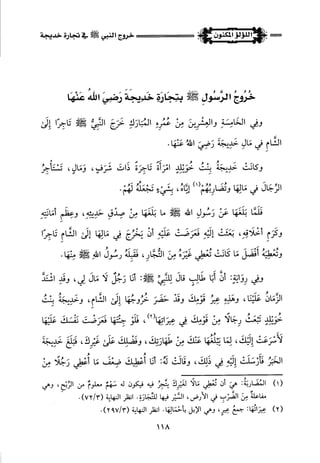 اللؤلؤ المكنون
خروج النبي ﷺ في تجارة خديجة
خُرُوجُ الرَّسُولِ ﷺ بِتِجَارَةِ خَدِيجَةَ رَضِيَ اللهُ عَنْهَا
وفِي الخَامِسَةِ والعِشْرِينَ مِنْ عُمُرِهِ المُبَارَكِ خَرَجَ النَّبِيُّ ﷺ تَاجِرًا إِلَى
الشَّامِ فِي مَالِ خَدِيجَةَ رَضِيَ اللهُ عَنْهَا.
وكَانَتْ خَدِيجَةُ بِنْتُ خُوَيْلِدٍ امْرَأَةً تَاجِرَةً ذَاتَ شَرَفٍ، وَمَالٍ، تَسْتَأْجِرُ
الرِّجَالَ فِي مَالِهَا وتُضَارِبُهُمْ (١) إِيَّاهُ، بِشَيْءٍ تَجْعَلُهُ لَهُمْ.
فَلَمَّا بَلَغَهَا عَنْ رَسُولِ اللهِ ﷺ مَا بَلَغَهَا مِنْ صِدْقِ حَدِيثِهِ، وعِظَمِ أمَانَتِهِ
وكَرَمِ أخْلَاقِهِ، بَعَثَتْ إِلَيْهِ فَعَرَضَتْ عَلَيْهِ أَنْ يَخْرُجَ فِي مَالِهَا إلَى الشَّامِ تَاجِرًا
وتُعْطِيَهُ أَفْضَلَ مَا كَانَتْ تُعْطِي غَيْرَهُ مِنَ التُّجَّارِ، فَقَبِلَهُ رَسُولُ اللهِ ﷺ مِنْهَا.
وفِي رِوَايَةٍ: أنَّ أبَا طَالِبٍ قَالَ لِلنَّبِيِّ ﷺ: أنَا رَجُلٌ لَا مَالَ لِي، وقَدِ اشْتَدَّ
الزَّمَانُ عَلَيْنَا، وهَذِهِ عِيرُ قَوْمِكَ وقَدْ حَضَرَ خُرُوجُهَا إلَى الشَّامِ، وخَدِيجَةُ بِنْتُ
خُوَيْلِدٍ تَبْعَثُ رِجَالًا مِنْ قَوْمِكَ فِي عِيرَاتِهَا (٢)، فَلَوْ جِئْتَهَا فَعَرَضْتَ نَفْسَكَ عَلَيْهَا
لَأَسْرَعَتْ إِلَيْكَ، لِمَا يَبْلُغُهَا عَنْكَ مِنْ طَهَارَتِكَ، وفَضْلِكَ عَلَى غَيْرِكَ، فَبَلَغَ خَدِيجَةَ
الخَبَرُ فَأَرْسَلَتْ إِلَيْهِ فِي ذَلِكَ، وقَالَتْ لَهُ: أنَا أُعْطِيكَ ضِعْفَ مَا أُعْطِي رَجُلًا مِنْ
(١) المُضَارَبَةُ: هي أن تُعْطِي مَالًا لغيركَ يَتَّجِرُ فيه فيكون له سَهْمٌ معلومٌ من الرِّبْحِ، وهي
مفاعلة من الضَّرْبِ في الأرضِ، السَّيْرِ فيها للتِّجَارَةِ. انظر النهاية (٧٢/٣).
(٢) عِيرَاتُهَا: جمع عِيرٍ، وهي الإبل بأحْمَالِهَا. انظر النهاية (٢٩٧/٣).
١١٨